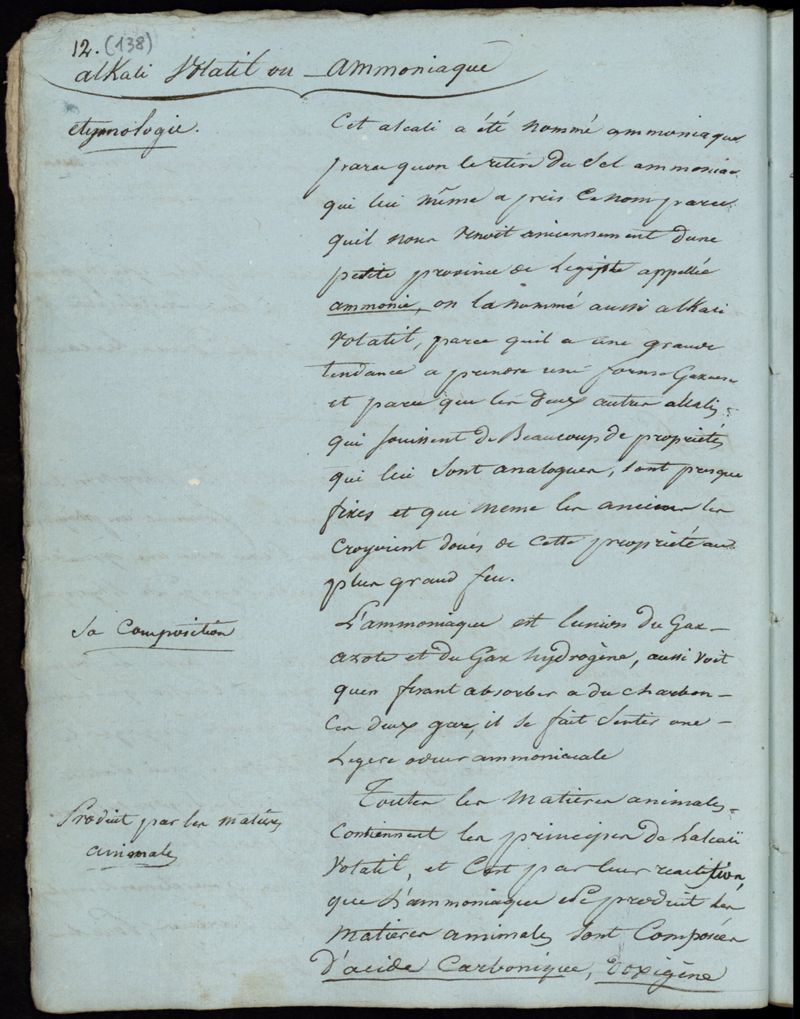 12. (138)
alKali Volatil ou ammoniaque
etymologie.
Cet alcali a été nommé ammoniaque
parce quon le retire du Sel ammoniac
qui lui même a pris Ce nom parce
quil nous venoit anciennement dune
petite province de legipte appellée
ammonie, on la nommé aussi alKali
Volatil, parce quil a une grande
tendance a prendre une forme Gazeuse
et parce que les deux autres alkalis
qui jouissent de Beaucoup de propriétés
qui lui Sont analogues, sont presque
fixes et que meme les anciens les
Croyoient doués de cette propriété au
plus grand feu.
Sa Composition
L'ammoniaque est lunion du Gaz
azote et du Gaz hydrogène, aussi voit
quen fesant absorber a du charbon
Ces deux gaz, il se fait Sentir une
Legere odeur ammoniacale
Produit par les matières
animales
Toutes les matières animales
Contiennent les principes de Lalcali
Volatil, et C'est par leur réaction
que L'ammoniaque est produit Les
Matieres animales Sont Composées
D'acide Carbonique, D'oxigène